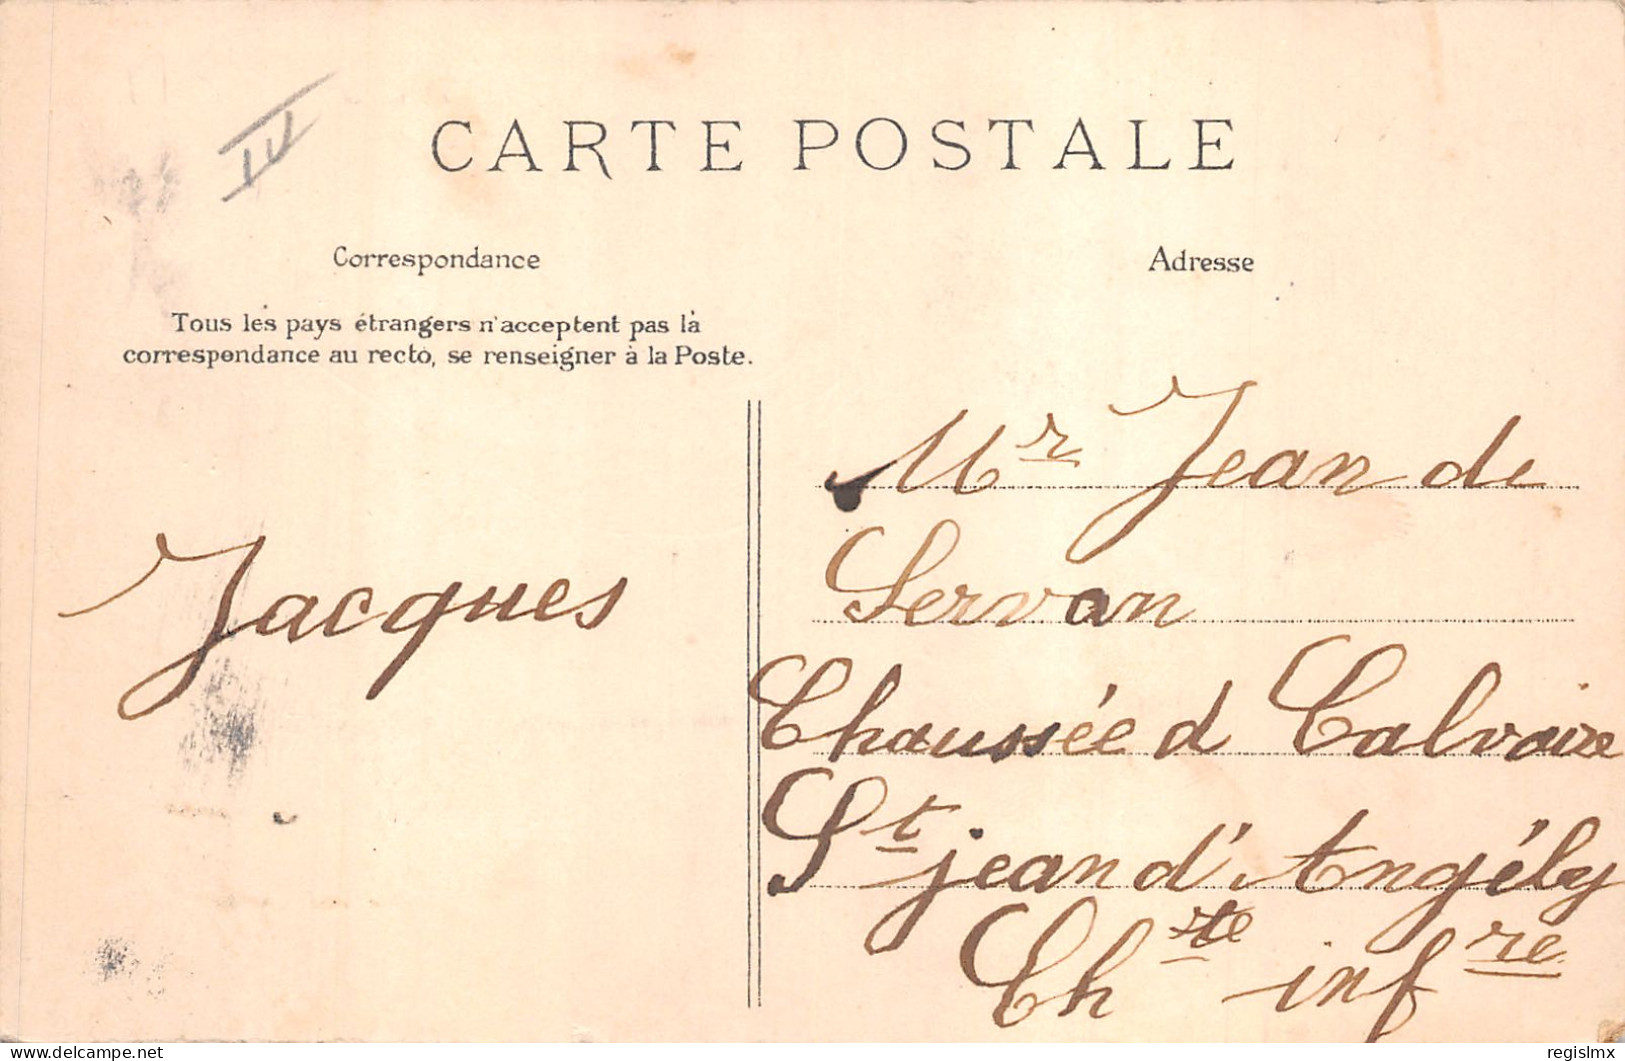 IV
CARTE POSTALE
Correspondance
Adresse
Tous les pays étrangers n'acceptent pas la
correspondance au recto, se renseigner à la Poste.
Jacques
Mr Jean de
Servan
Chaussée d Calvaire
St jean d'Angély
Chte infre
delcampe.net
regislmx